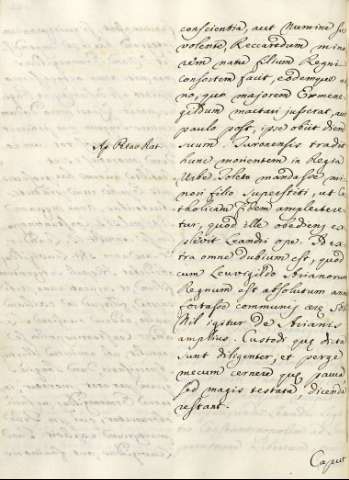 conscientia, aut Numine fa
volente, Reccaredum mino
rem natu filium Regni
Consortem facit, eodemque an
no, quo majorem Ermene
gildum mactari jusserat, aut
paulo post, ipse obiit diem
suum. Turonensis tradit
Ap Petav Rat
hunc morientem in Regia
Urbe Toleto mandasse, mi
nori filio superstiti, ut Ca
tholicam Fidem amplectere
tur, quod ille obediens ex
plevit Leandri ope. Ex
tra omne dubium est, quod
cum Leuvigildo Arianorum
Regnum est absolutum anno
fortasse communis aeræ 586
Nil igitur de Arianis
amplius. Custodi quę dicta
sunt diligenter, et perge
mecum cernere quę pauca
sed magis testata, dicenda
restant.
Caput